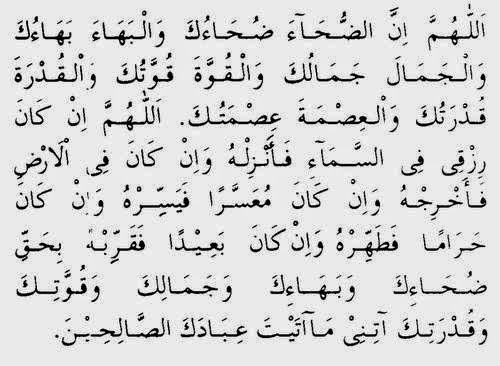 اَللّٰهُمَّ اِنَّ الضُّحَآءَ ضُحَاءُكَ وَالْبَهَاءَ بَهَاءُكَ
وَالْجَمَالَ جَمَالُكَ وَالْقُوَّةَ قُوَّتُكَ وَالْقُدْرَةَ
قُدْرَتُكَ وَالْعِصْمَةَ عِصْمَتُكَ. اَللّٰهُمَّ اِنْ كَانَ
رِزْقِى فِى السَّمَآءِ فَأَنْزِلْهُ وَاِنْ كَانَ فِى اْلاَرْضِ
فَأَخْرِجْهُ وَاِنْ كَانَ مُعَسَّرًا فَيَسِّرْهُ وَاِنْ كَانَ
حَرَامًا فَطَهِّرْهُ وَاِنْ كَانَ بَعِيْدًا فَقَرِّبْهُ بِحَقِّ
ضُحَاءِكَ وَبَهَاءِكَ وَجَمَالِكَ وَقُوَّتِكَ
وَقُدْرَتِكَ آتِنِيْ مَآآتَيْتَ عِبَادَكَ الصَّالِحِيْنَ.